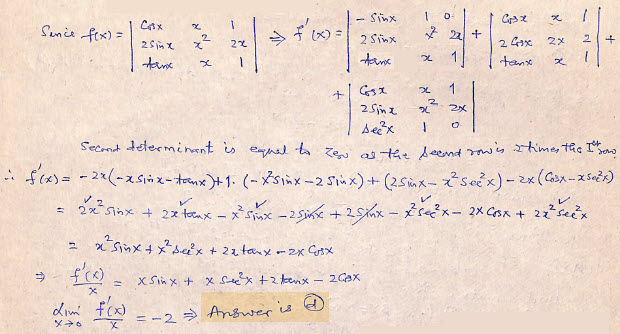 Sence f(x) = | Cosx x 1 | ⇒ f'(x) = | -Sinx 1 0 | + | Cosx x 1 | +
| 2Sinx x² 2x | | 2Sinx x² 2x | | 2Cosx 2x 2 |
| tanx x 1 | | tanx x 1 | | tanx x 1 |
+ | Cosx x 1 |
| 2Sinx x² 2x |
| Sec²x 1 0 |
Second determinant is equal to Zero as the Second row is 2 times the Ist row.
∴ f'(x) = -2x(-xSinx-tanx)+1.(-x²Sinx-2Sinx)+(2Sinx-x²Sec²x)-2x(Cosx-xSec²x)
= 2x²Sinx + 2xtanx - x²Sinx - 2Sinx + 2Sinx - x²Sec²x - 2xCosx + 2x²Sec²x
= x²Sinx + x²Sec²x + 2xtanx - 2xCosx
⇒ f'(x)/x = xSinx + xSec²x + 2tanx - 2Cosx
lim x→0 f'(x)/x = -2 ⇒ Answer is (d)